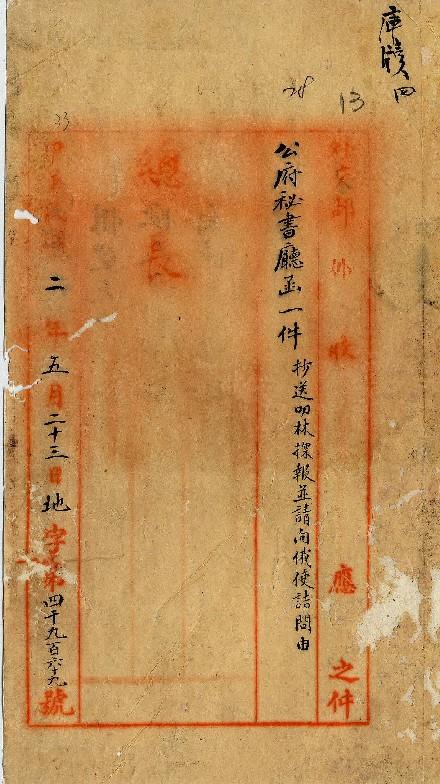 庫牘四
13
28
33
外交部 收 應 之件
公府秘書廳函一件
抄送叨林探報並請向俄使詰問由
總長
二年五月二十三日地字第四千九百六十九號